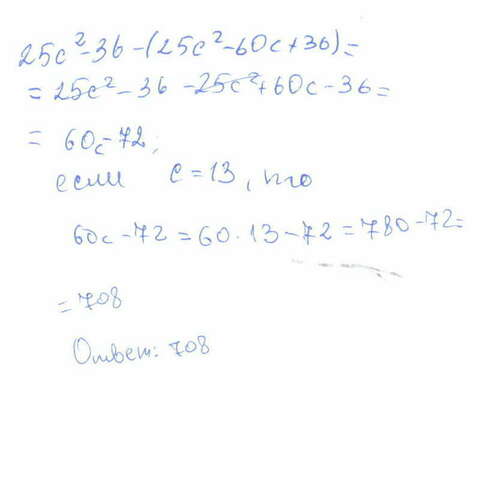 25c²-36-(25c²-60c+36)=
=25c²-36-25c²+60c-36=
= 60c-72;
если c=13, то
60c-72=60·13-72=780-72=
=708
Ответ: 708